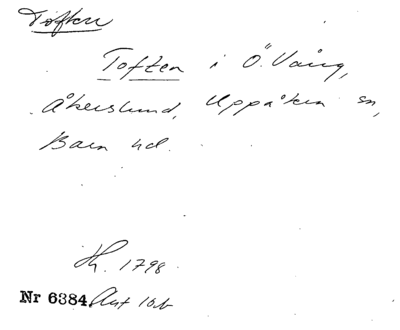 Toften
Toften i Ö. Vång,
Åkerslund, Uppåkra sn,
Bara hd.
Th. 1798
Nr 6384 Akt 10b